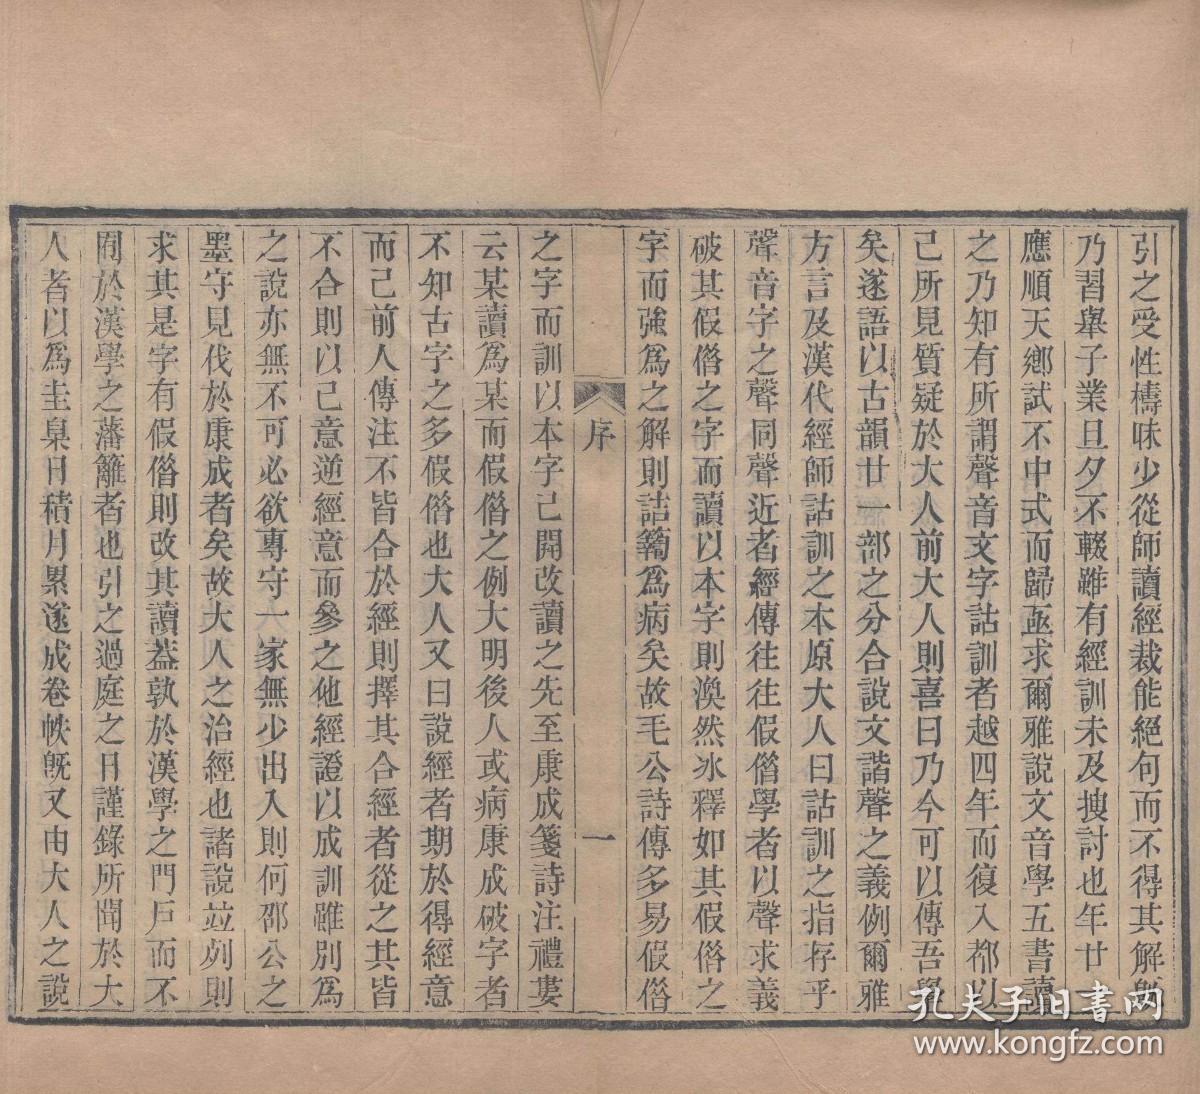 引之受性檮昧少從師讀經裁能絕句而不得其解旣
乃習舉子業旦夕不輟雖有經訓未及搜討也年廿一
應順天鄉試不中式而歸亟求爾雅說文音學五書讀
之乃知有所謂聲音文字詁訓者越四年而復入都以
己所見質疑於大人前大人則喜曰乃今可以傳吾學
矣遂語以古韻廿一部之分合說文諧聲之義例爾雅
方言及漢代經師詁訓之本原大人曰詁訓之指存乎
聲音字之聲同聲近者經傳往往假借學者以聲求義
破其假借之字而讀以本字則渙然冰釋如其假借之
字而強爲之解則詰𥷚爲病矣故毛公詩傳多易假借
序 一
之字而訓以本字己開改讀之先至康成箋詩注禮婁
云某讀爲某而假借之例大明後人或病康成破字者
不知古字之多假借也大人又曰說經者期於得經意
而己前人傳注不皆合於經則擇其合經者從之其皆
不合則以己意逆經意而參之他經證以成訓雖別爲
之說亦無不可必欲專守一家無少出入則何邵公之
墨守見伐於康成者矣故大人之治經也諸說竝列則
求其是字有假借則改其讀蓋孰於漢學之門戶而不
囿於漢學之藩籬者也引之過庭之日謹錄所聞於大
人者以爲圭臬日積月累遂成卷帙旣又由大人之說
孔夫子旧书网
www.kongfz.com